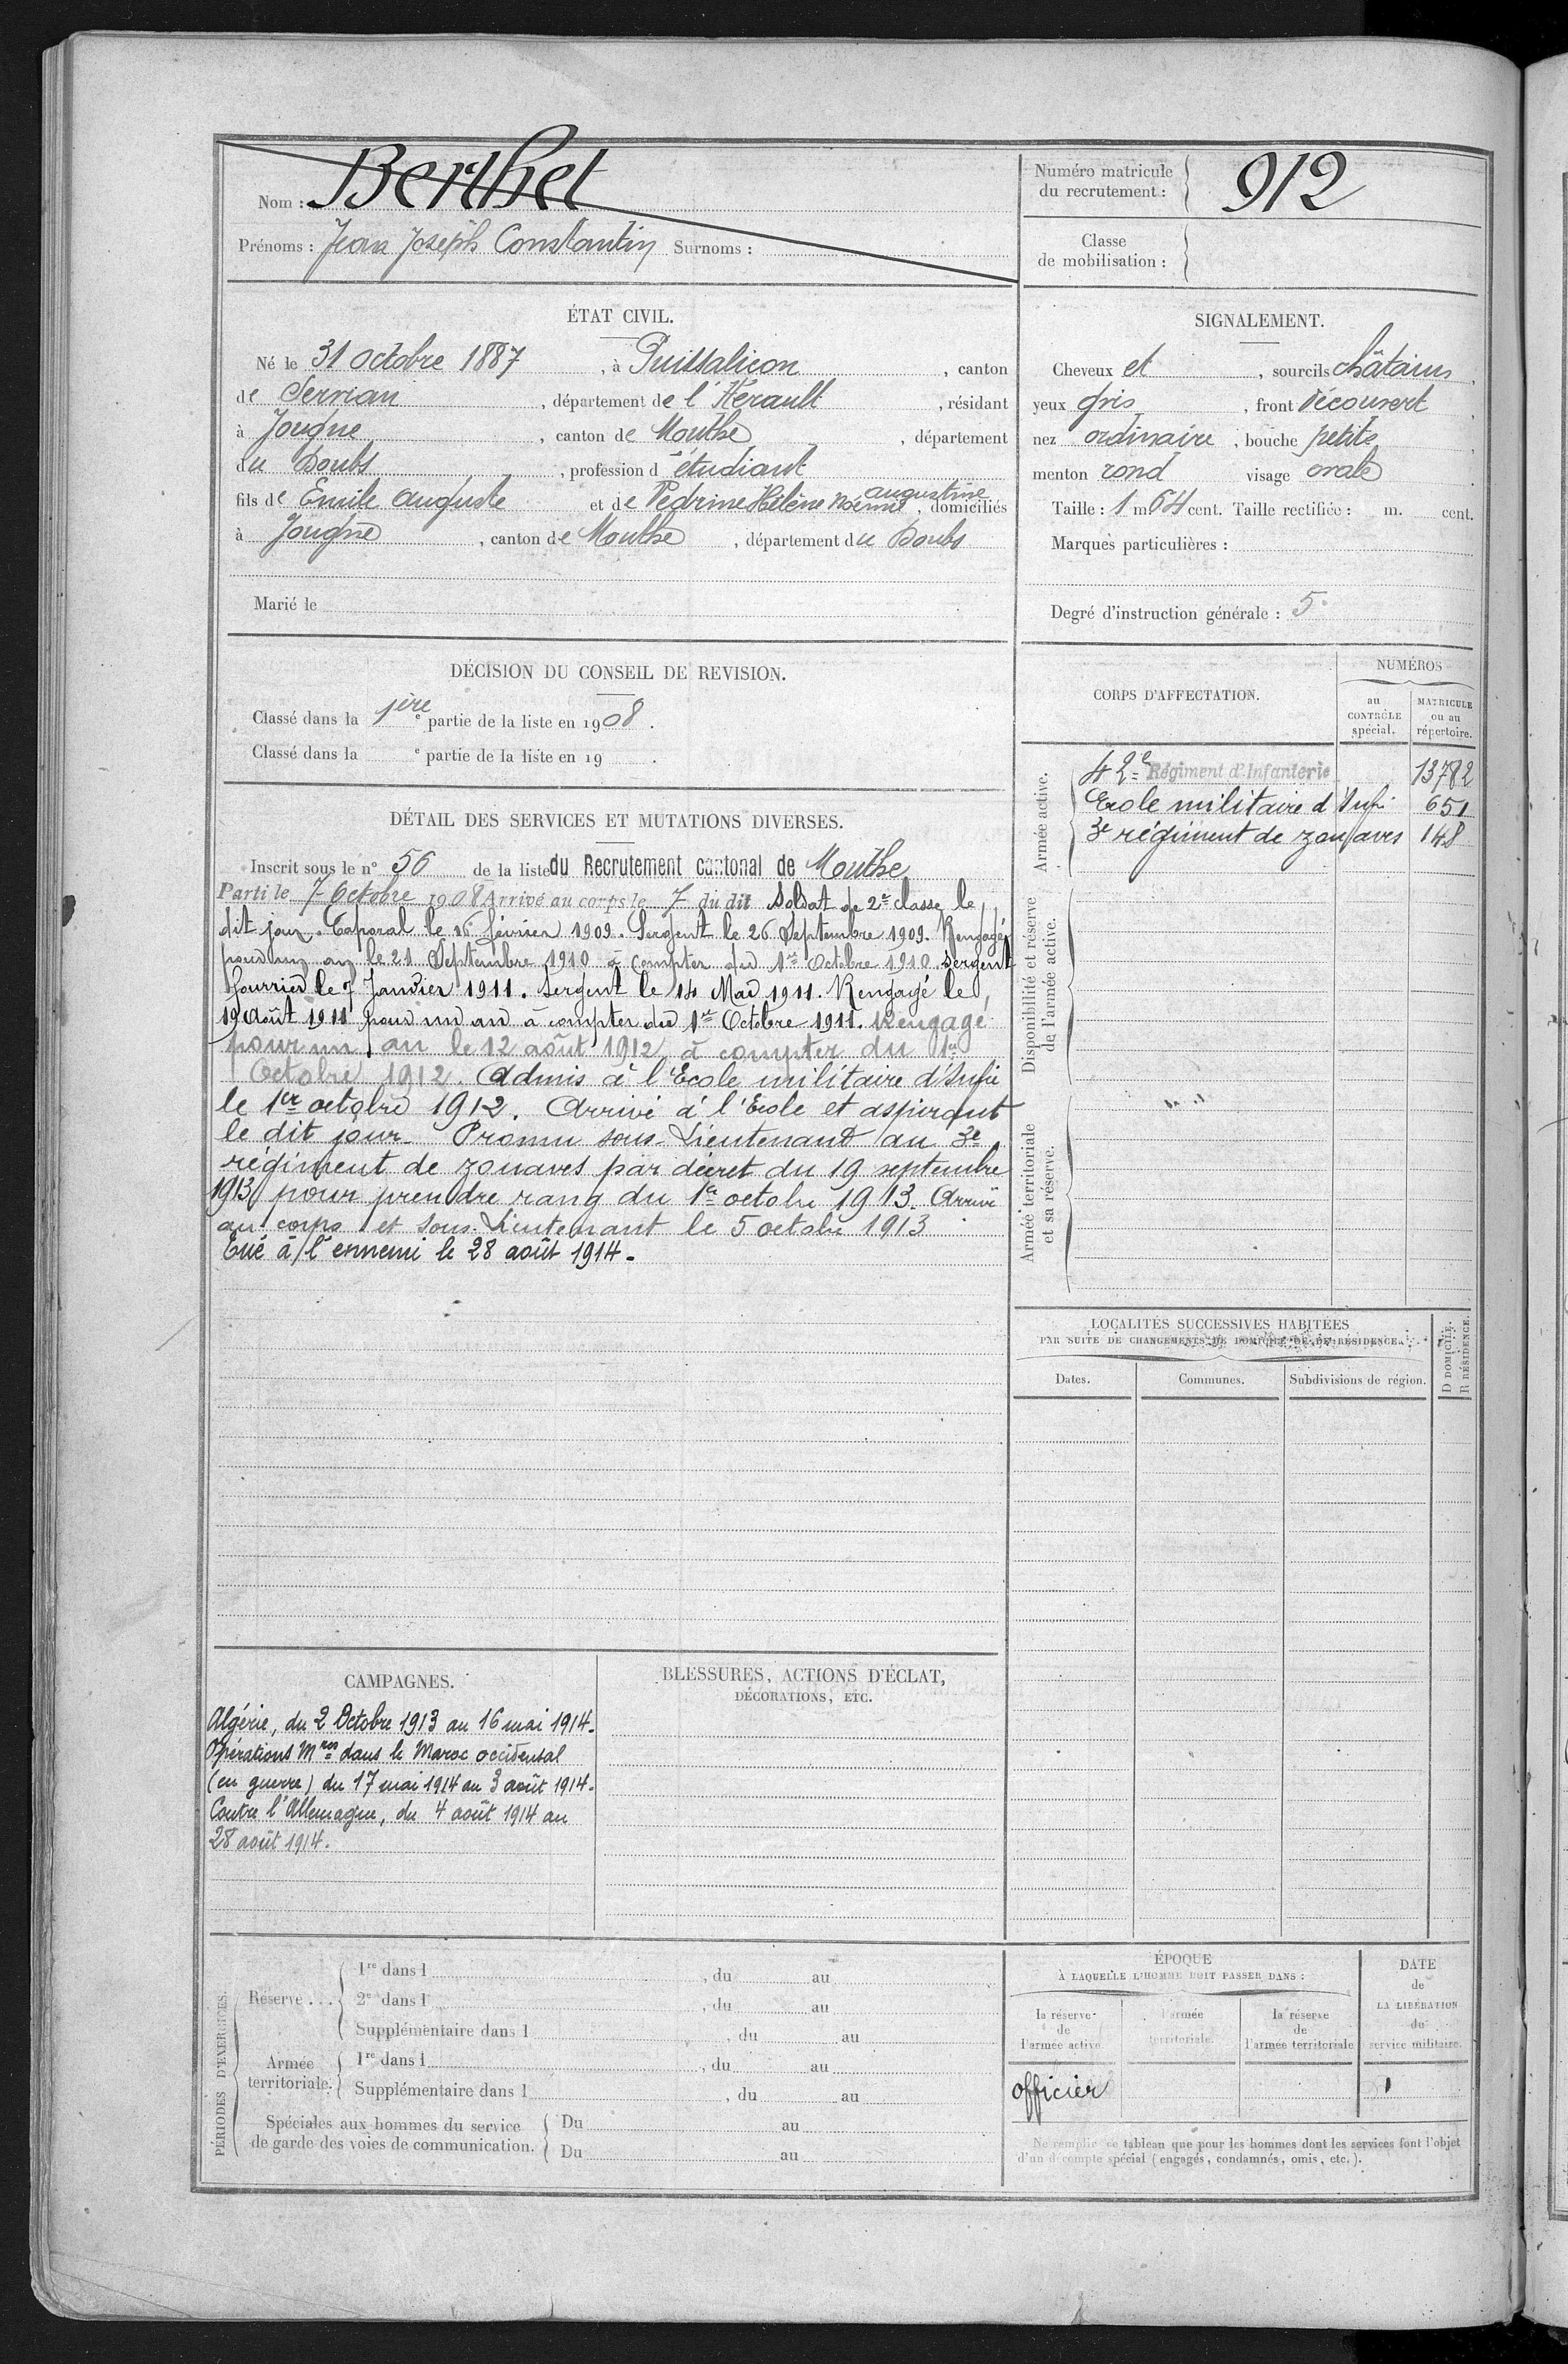 Nom : Berthet
Prénoms : Jean Joseph Constantin Surnoms :
Numéro matricule
du recrutement : 912
Classe
de mobilisation :
ÉTAT CIVIL.
Né le 31 octobre 1887, à Puissalicon, canton
de Servian, département de l'Hérault, résidant
à Jougne, canton de Mouthe, département
du Doubs, profession d'étudiant
fils de Emile auguste et de Pedrine Hélène Noémie augustine, domiciliés
à Jougne, canton de Mouthe, département du Doubs
Marié le
SIGNALEMENT.
Cheveux et, sourcils châtains,
yeux gris, front découvert,
nez ordinaire, bouche petite,
menton rond visage ovale
Taille : 1 m 64 cent. Taille rectifiée : m. cent.
Marques particulières :
Degré d'instruction générale : 5
DÉCISION DU CONSEIL DE REVISION.
Classé dans la 1ère e partie de la liste en 1908.
Classé dans la e partie de la liste en 19 .
DÉTAIL DES SERVICES ET MUTATIONS DIVERSES.
Inscrit sous le n° 56 de la liste du Recrutement cantonal de Mouthe
Parti le 7 Octobre 1908 Arrivé au corps le 7 du dit Soldat de 2e classe le
dit jour. Caporal le 16 février 1909. Sergent le 26 Septembre 1909. Rengagé
pour un an le 21 Septembre 1910 à compter du 1er Octobre 1910. Sergent
fourrier le 7 Janvier 1911. Sergent le 14 Mai 1911. Rengagé le
19 Août 1911 pour un an à compter du 1er Octobre 1911. Rengagé
pour un an le 12 août 1912 à compter du 1er
Octobre 1912. Admis à l'Ecole militaire d'Infie
le 1er octobre 1912. Arrivé à l'Ecole et aspirant
le dit jour. Promu sous-Lieutenant au 3e
régiment de zouaves par décret du 19 septembre
1913 pour prendre rang du 1er octobre 1913. Arrivé
au corps et sous-Lieutenant le 5 octobre 1913
Tué à l'ennemi le 28 août 1914.
CORPS D'AFFECTATION.
NUMÉROS
au
CONTRÔLE
spécial.
MATRICULE
ou au
répertoire.
Armée active.
42e Régiment d'Infanterie 13782
Ecole militaire d'Infie 651
3e régiment de zouaves 148
Disponibilité et réserve
de l'armée active.
Armée territoriale
et sa réserve.
LOCALITÉS SUCCESSIVES HABITÉES
PAR SUITE DE CHANGEMENTS DE DOMICILE OU DE RÉSIDENCE.
Dates.
Communes.
Subdivisions de région.
D DOMICILE.
R RÉSIDENCE.
CAMPAGNES.
Algérie, du 2 Octobre 1913 au 16 mai 1914.
Opérations Mres dans le Maroc occidental
(en guerre) du 17 mai 1914 au 3 août 1914.
Contre l'Allemagne, du 4 août 1914 au
28 août 1914.
BLESSURES, ACTIONS D'ÉCLAT,
DÉCORATIONS, ETC.
PÉRIODES D'EXERCICES.
Réserve...
1re dans l , du au
2e dans l , du au
Supplémentaire dans l , du au
Armée
territoriale.
1re dans l , du au
Supplémentaire dans l , du au
Spéciales aux hommes du service
de garde des voies de communication.
Du au
Du au
ÉPOQUE
À LAQUELLE L'HOMME DOIT PASSER DANS :
la réserve
de
l'armée active
l'armée
territoriale.
la réserve
de
l'armée territoriale
DATE
de
LA LIBÉRATION
du
service militaire.
officier
Ne remplir ce tableau que pour les hommes dont les services font l'objet
d'un décompte spécial (engagés, condamnés, omis, etc.).